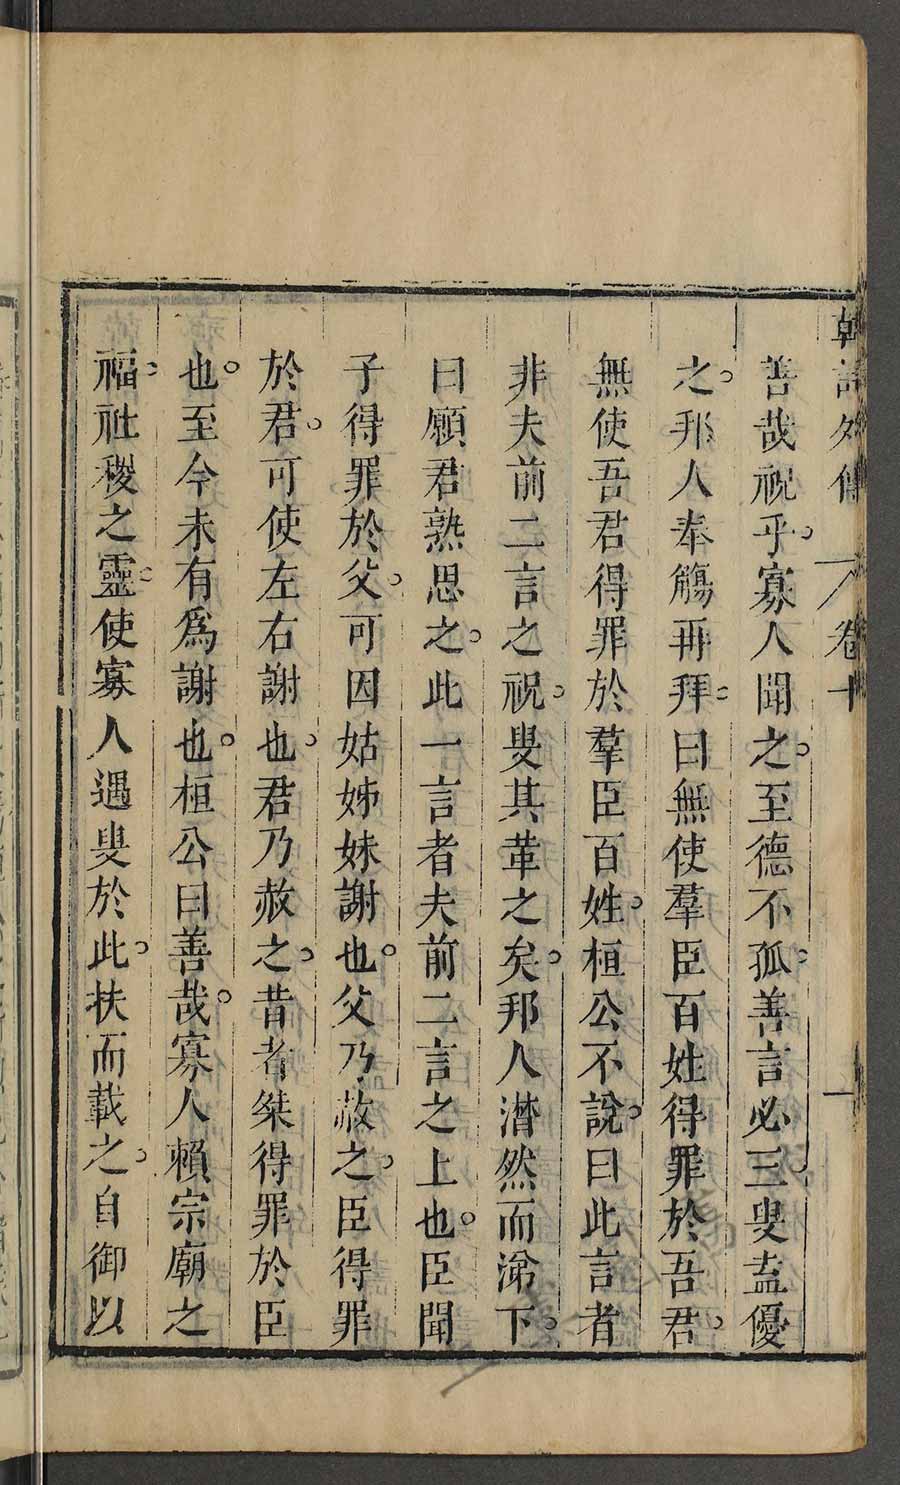 韓詩外傳 卷十 一
善哉祝乎。寡人聞之。至德不孤。善言必三。叟盍優
之。邦人奉觴再拜。曰無使羣臣百姓得罪於吾君。
無使吾君得罪於羣臣百姓。桓公不說。曰此言者
非夫前二言之祝。叟其革之矣。邦人潸然而涕下。
曰願君熟思之。此一言者夫前二言之上也。臣聞
子得罪於父。可因姑姊妹謝也。父乃赦之。臣得罪
於君。可使左右謝也。君乃赦之。昔者桀得罪於臣
也。至今未有爲謝也。桓公曰善哉。寡人賴宗廟之
福。社稷之靈。使寡人遇叟於此。扶而載之。自御以